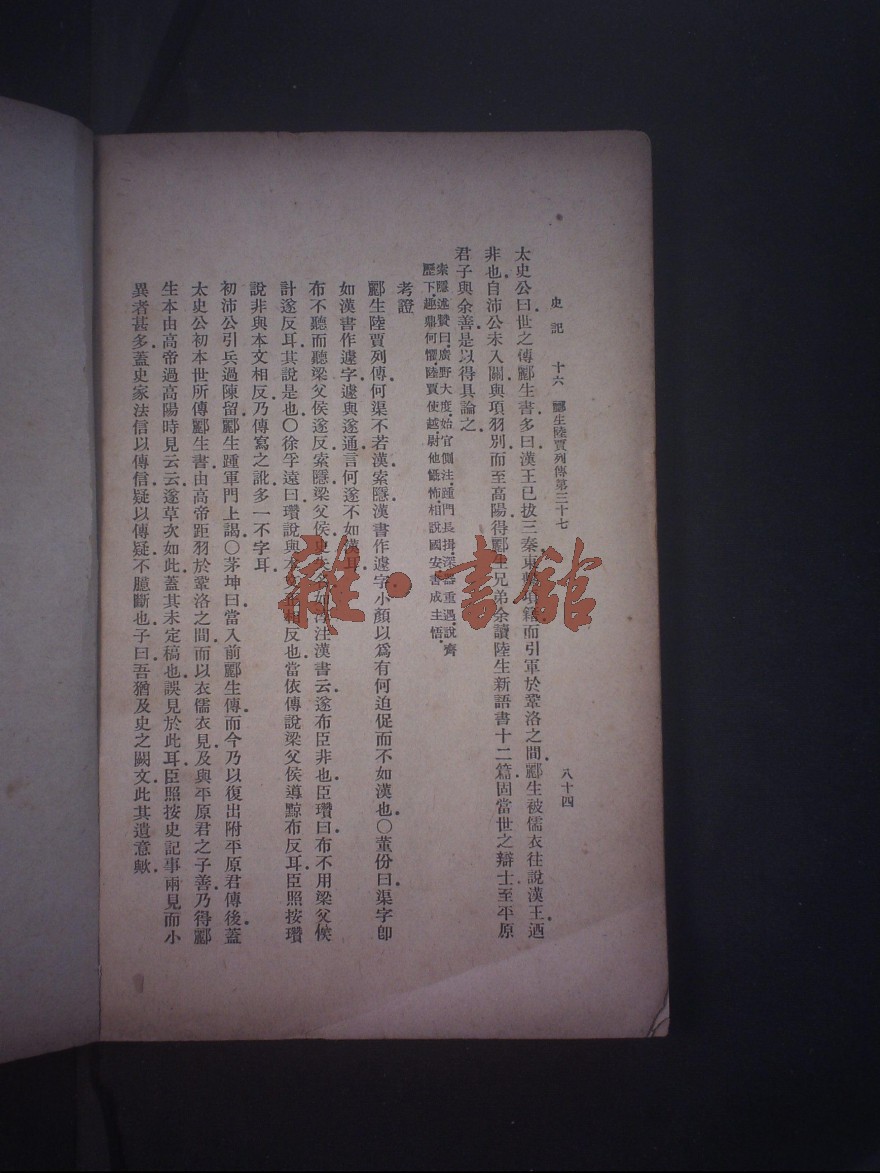 史記 十六 酈生陸賈列傳第三十七 八十四
太史公曰世之傳酈生書多曰漢王已拔三秦東擊項籍而引軍於鞏洛之間酈生被儒衣往說漢王迺
非也自沛公未入關與項羽別而至高陽得酈生兄弟余讀陸生新語書十二篇固當世之辯士至平原
君子與余善是以得具論之
索隱述贊曰廣野大度始官側注踵門長揖深器重遇說齊
歷下趣鼎何懼陸賈使越尉他懾怖相說國安書成主悟
考證
酈生陸賈列傳何渠不若漢索隱漢書作遽字小顏以爲有何迫促而不如漢也〇董份曰渠字卽
如漢書作遽字遽與遂通言何遂不如漢耳
布不聽而聽梁父侯遂反索隱梁父侯史失名如淳注漢書云遂布臣非也臣瓚曰布不用梁父侯
計遂反耳其說是也〇徐孚遠曰瓚說與本文正相反也當依傳說梁父侯導黥布反耳臣照按瓚
說非與本文相反乃傳寫之訛多一不字耳
初沛公引兵過陳留酈生踵軍門上謁〇茅坤曰當入前酈生傳而今乃以復出附平原君傳後蓋
太史公初本世所傳酈生書由高帝距羽於鞏洛之間而以衣儒衣見及與平原君之子善乃得酈
生本由高帝過高陽時見云云遂草次如此蓋其未定稿也誤見於此耳臣照按史記事兩見而小
異者甚多蓋史家法信以傳信疑以傳疑不臆斷也子曰吾猶及史之闕文此其遺意歟
雜·書館